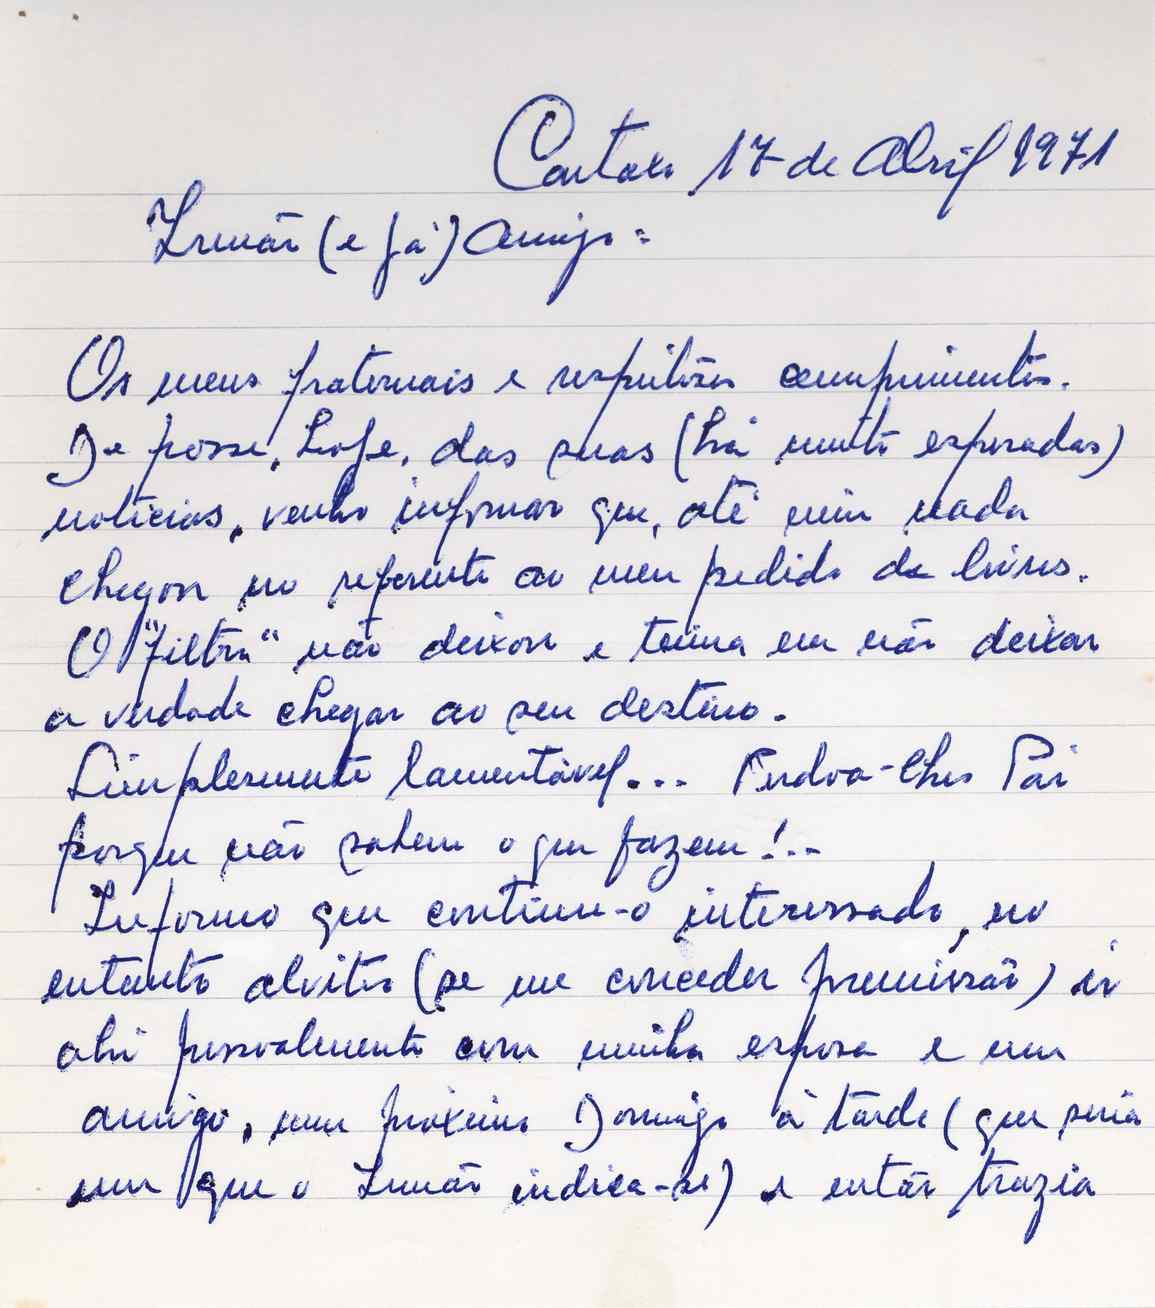 Cartaxo 17 de Abril 1971
Irmão (e já) Amigo:
Os meus fraternais e respeitosos cumprimentos.
De posse, hoje, das suas (há muito esperadas)
notícias, venho informar que, até mim nada
chegou no referente ao meu pedido de livros.
O "filtro" não deixou e teima em não deixar
a verdade chegar ao seu destino.
Simplesmente lamentável... Perdoa-lhes Pai
porque não sabem o que fazem!...
Informo que continu-o interessado, no
entanto alvitro (se me conceder premissão) ir
ahi pessoalmente com minha esposa e um
amigo, num próximo Domingo à tarde (que seria
um que o Irmão indica-se) e então trazia